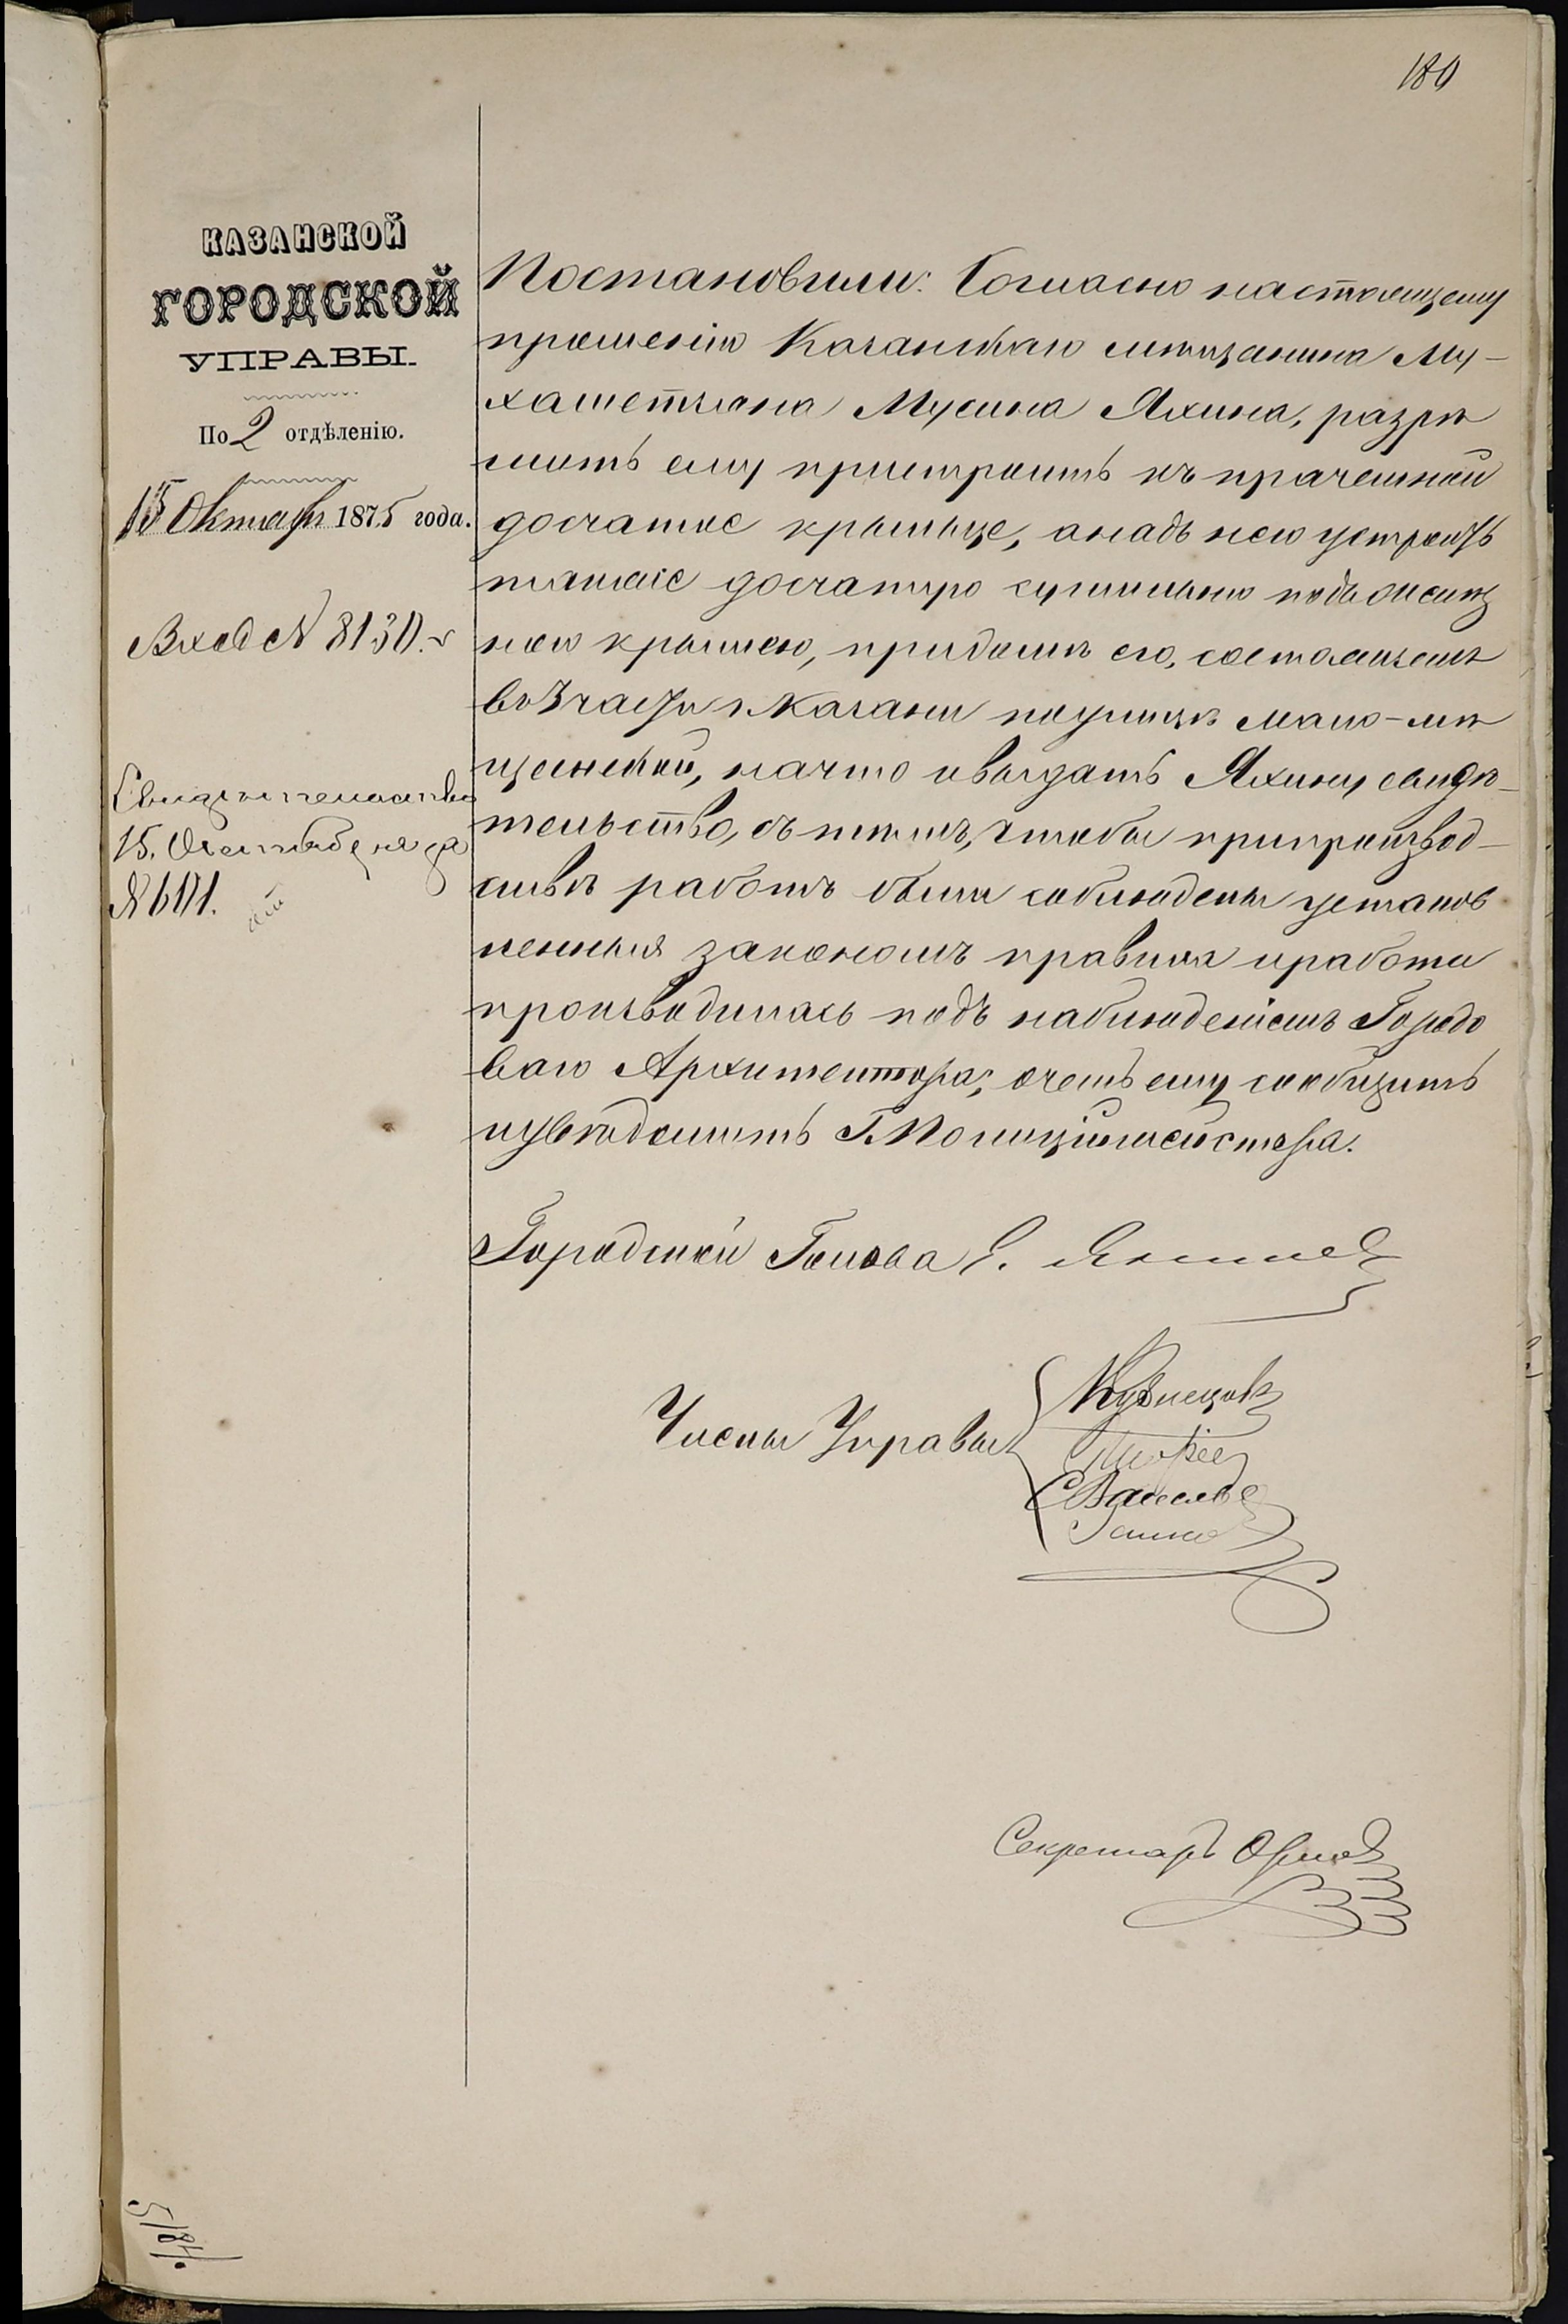 180
КАЗАНСКОЙ
ГОРОДСКОЙ
УПРАВЫ.
По 2 отдѣленію.
15 Октября 1875 года.
Вход № 8130.
Свидѣтельство
15. Октяб
№ 601.
Постановили: Согласно настоящему
прошенію Казанскаго мѣщанина Му-
хаметзяна Мусина Яхина, разрѣ
шить ему пристроить къ прачешной
досчатое крыльцо, а надъ нею устроить
таковую досчатую сушильню подъ желѣз
ною крышею, придомѣ его, состоящемъ
въ 3 части г. Казани по улицѣ мало-мѣ
щанской, на что и выдать Яхину свидѣ-
тельство, съ тѣмъ, чтобы при производ-
ствѣ работъ были соблюдены установ
ленныя закономъ правила и работы
производилась подъ наблюденіемъ Городо
ваго Архитектора; о чемъ ему сообщить
и увѣдомить Г. Полиціймейстера.
Городской Голова Э. Янишев
Члены Управы
Кузнецовъ
С Васильев
Секретарь Орлов